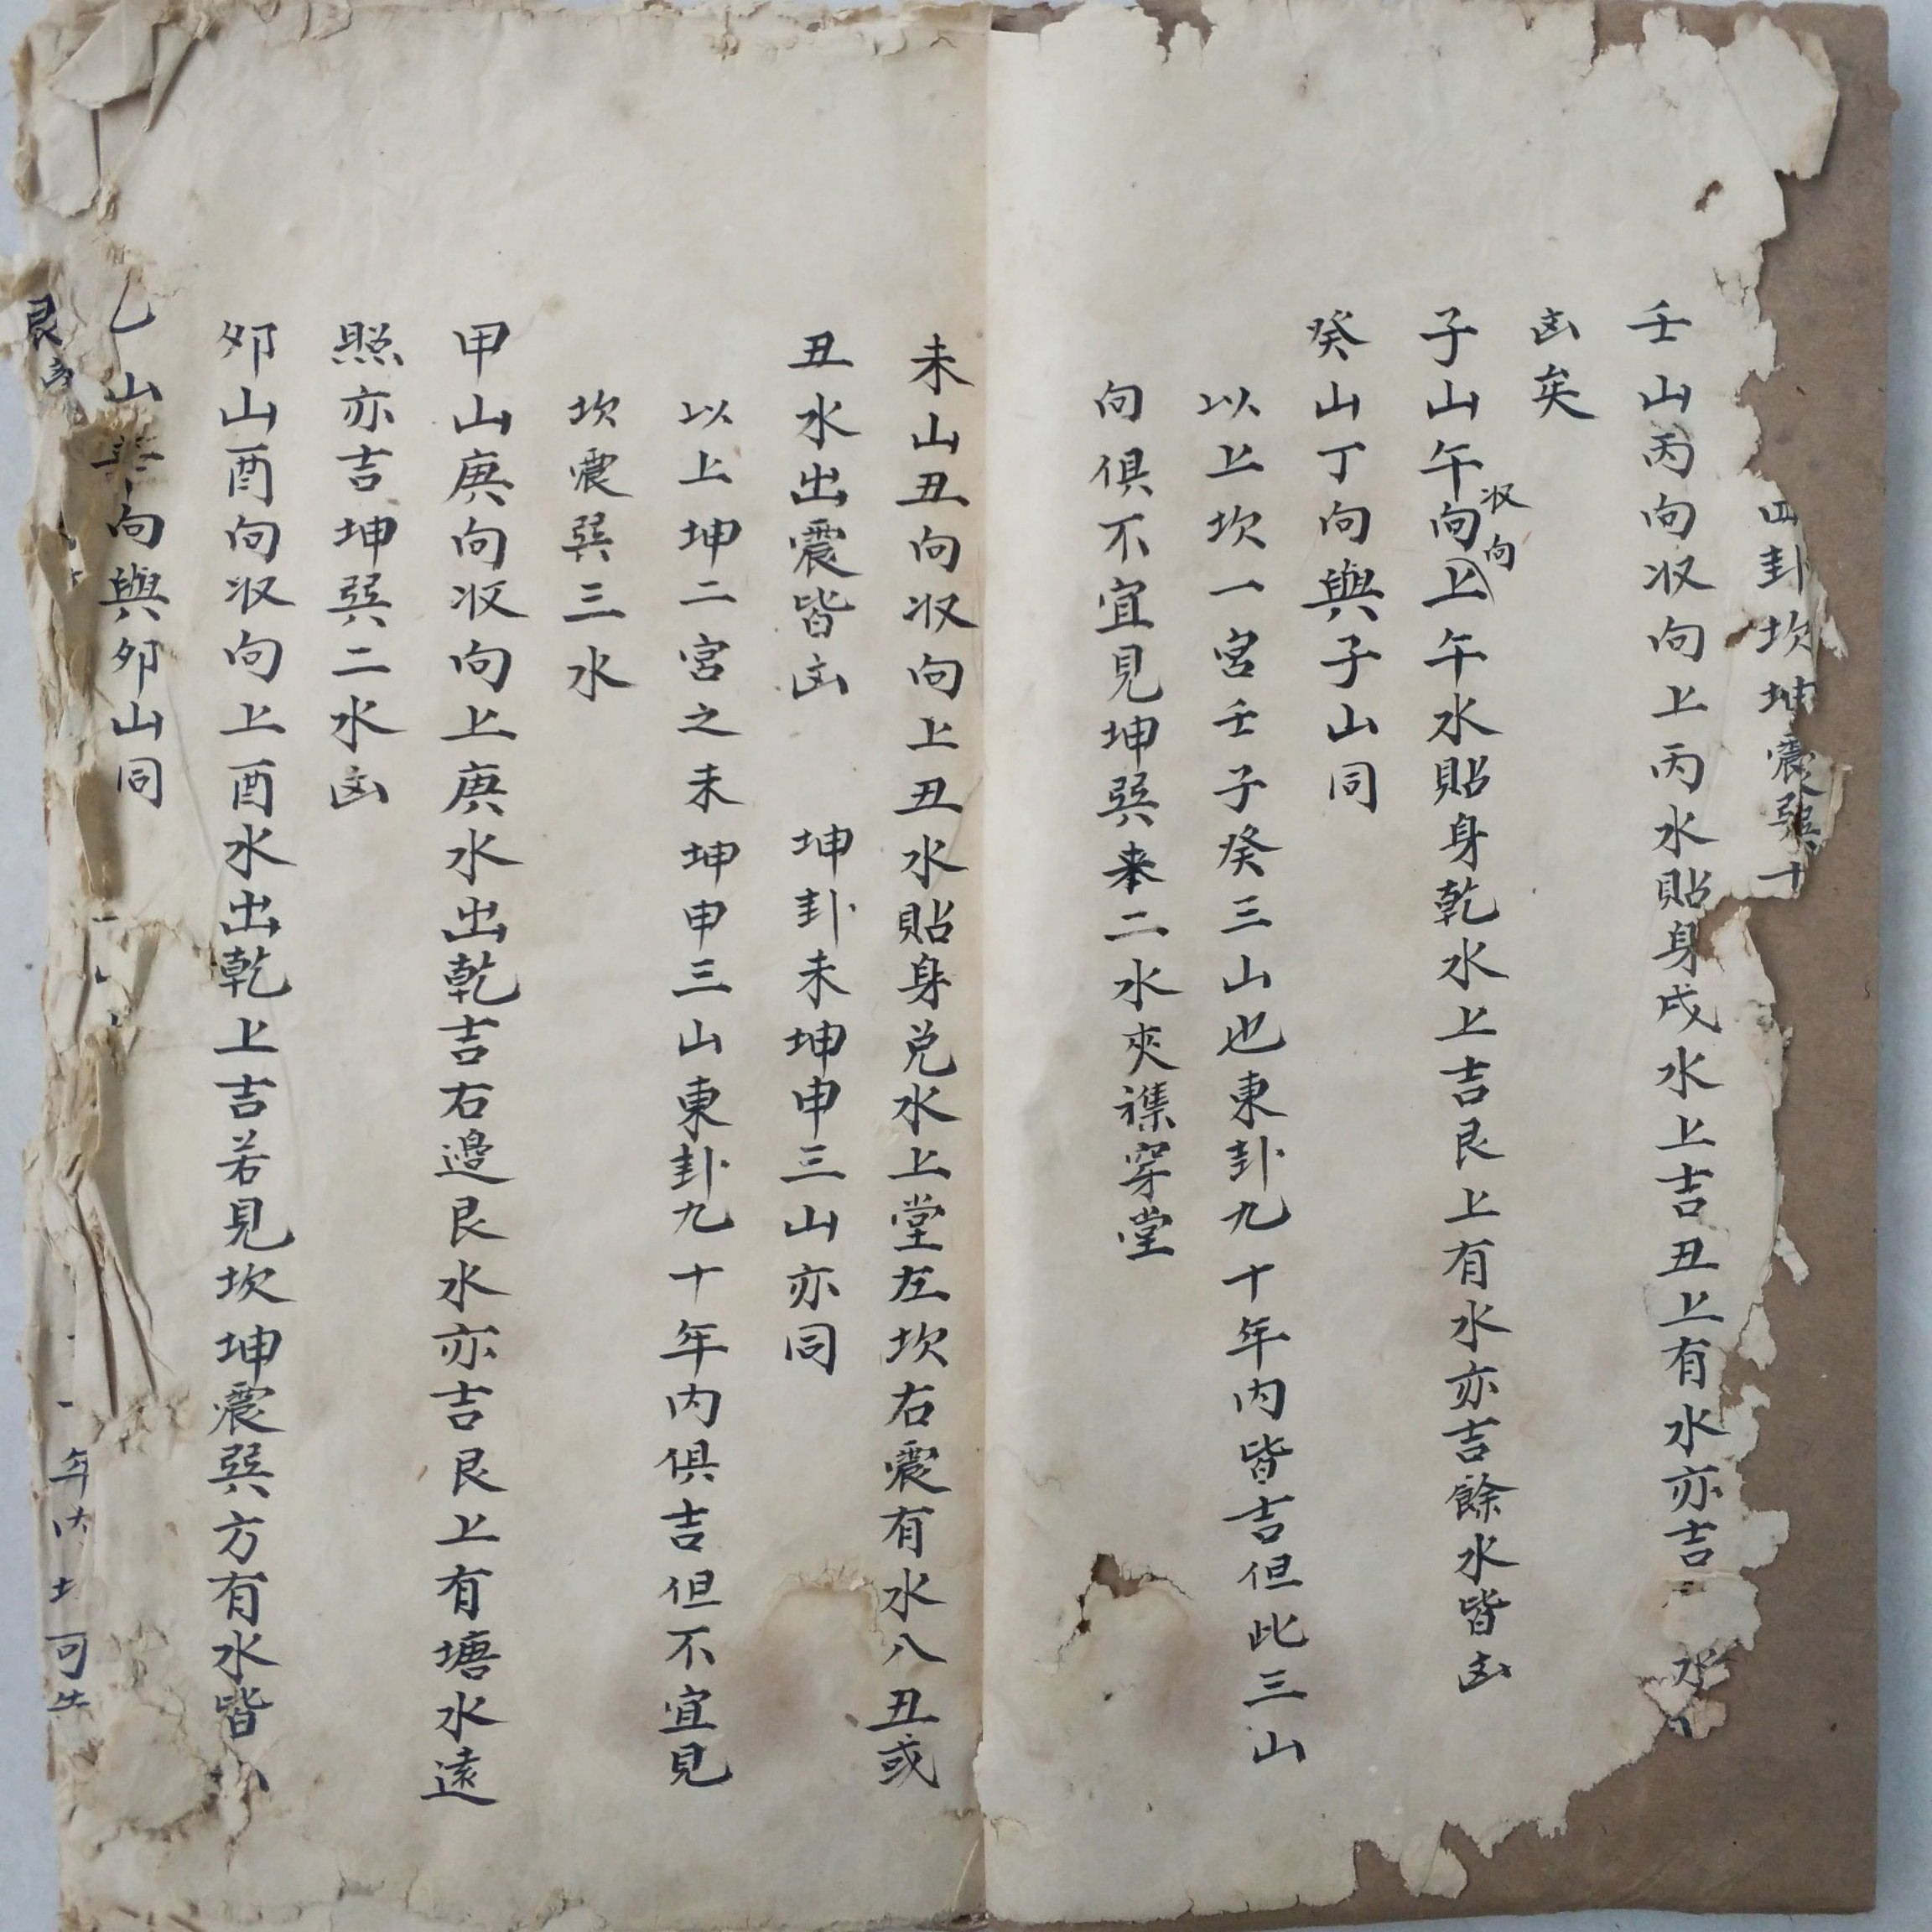 四卦坎坤震巽十
壬山丙向収向上丙水貼身戌水上吉丑上有水亦吉水
凶矣
子山午向収向上午水貼身乾水上吉艮上有水亦吉餘水皆凶
癸山丁向與子山同
以上坎一宮壬子癸三山也東卦九十年内皆吉但此三山
向俱不宜見坤巽来二水夾襍穿堂
未山丑向収向上丑水貼身兌水上堂左坎右震有水八丑或
丑水出震皆凶 坤卦未坤申三山亦同
以上坤二宮之未坤申三山東卦九十年内俱吉但不宜見
坎震巽三水
甲山庚向収向上庚水出乾吉右邉艮水亦吉艮上有塘水遠
照亦吉坤巽二水凶
夘山酉向収向上酉水出乾上吉若見坎坤震巽方有水皆
乙山向與夘山同
艮年可